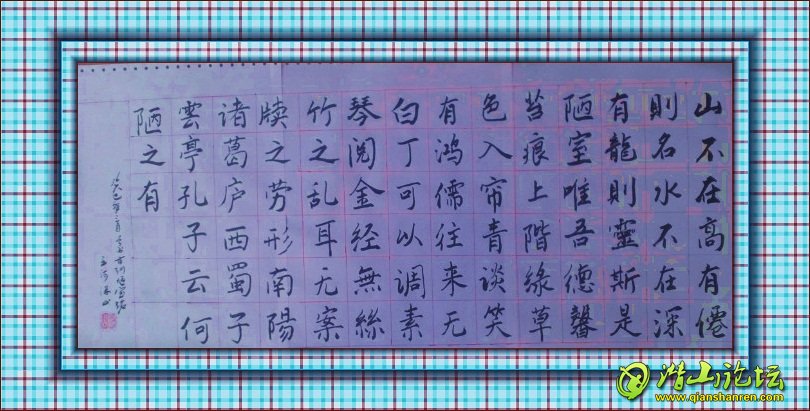 山不在高有僊
則名水不在深
有龍則靈斯是
陋室唯吾德馨
苔痕上階緑草
色入帘青谈笑
有鸿儒往来无
白丁可以调素
琴阅金经無絲
竹之乱耳无案
牍之劳形南陽
诸葛庐西蜀子
雲亭孔子云何
陋之有
癸巳年
潜山论坛
www.qianshanren.com